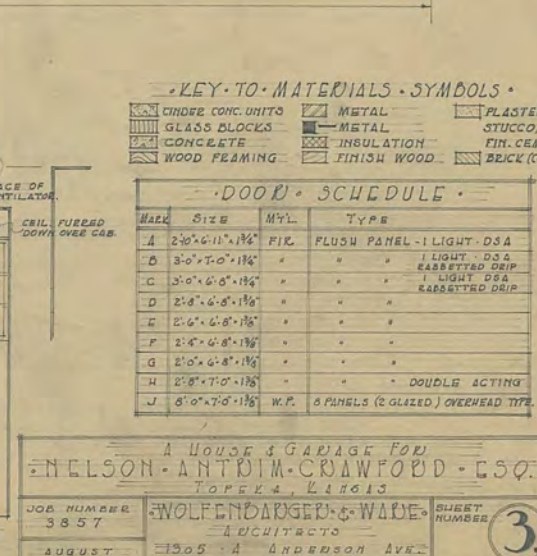 • KEY • TO • MATERIALS • SYMBOLS •
CINDER CONC. UNITS METAL PLASTE
GLASS BLOCKS METAL STUCCO,
CONCRETE INSULATION FIN. CEM
WOOD FRAMING FINISH WOOD BRICK (C
ACE OF
NTILATOR.
CEIL. FURRED
DOWN OVER CAB.
• DOOR • SCHEDULE •
MARK SIZE MT'L TYPE
A 2'-0" × 6'-11" × 1 3/4" FIR. FLUSH PANEL - 1 LIGHT - DSA
B 3'-0" × 7'-0" × 1 3/4" " " " 1 LIGHT - DSA RABBETTED DRIP
C 3'-0" × 6'-8" × 1 3/4" " " " 1 LIGHT DSA RABBETTED DRIP
D 2'-8" × 6'-8" × 1 3/8" " " "
E 2'-6" × 6'-8" × 1 3/8" " " "
F 2'-4" × 6'-8" × 1 3/8" " " "
G 2'-0" × 6'-8" × 1 3/8" " " "
H 2'-8" × 7'-0" × 1 3/8" " " " DOUBLE ACTING
J 8'-0" × 7'-0" × 1 3/8" W.P. 8 PANELS (2 GLAZED) OVERHEAD TYPE.
A HOUSE & GARAGE FOR
• NELSON • ANTRIM • CRAWFORD • ESQ.
TOPEKA, KANSAS
JOB NUMBER
3857
AUGUST
• WOLFENBARGER • & • WADE •
ARCHITECTS
1305 - A ANDERSON AVE.
SHEET
NUMBER
3